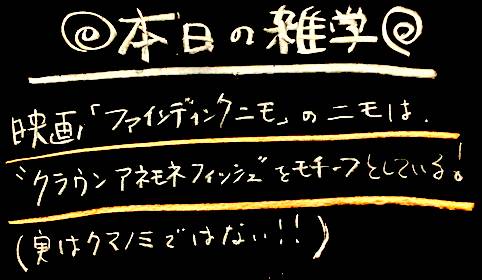 本日の雑学
映画「ファインディングニモ」のニモは、
"クラウンアネモネフィッシュ"をモチーフとしている!
(実はクマノミではない!!)